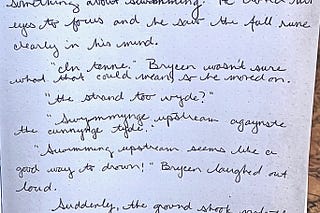 something about swimming. He
eyes to focus and he saw the full rune
clearly in his mind.
"cln tonne." Brycen wasn't sure
what that could mean, so he moved on.
"the strand too wyde?"
"Swymmynge upstream agaynste
the cunnynge tyde."
"Swimming upstream seems like a
good way to drown!" Brycen laughed out
loud.
Suddenly, the ground shook